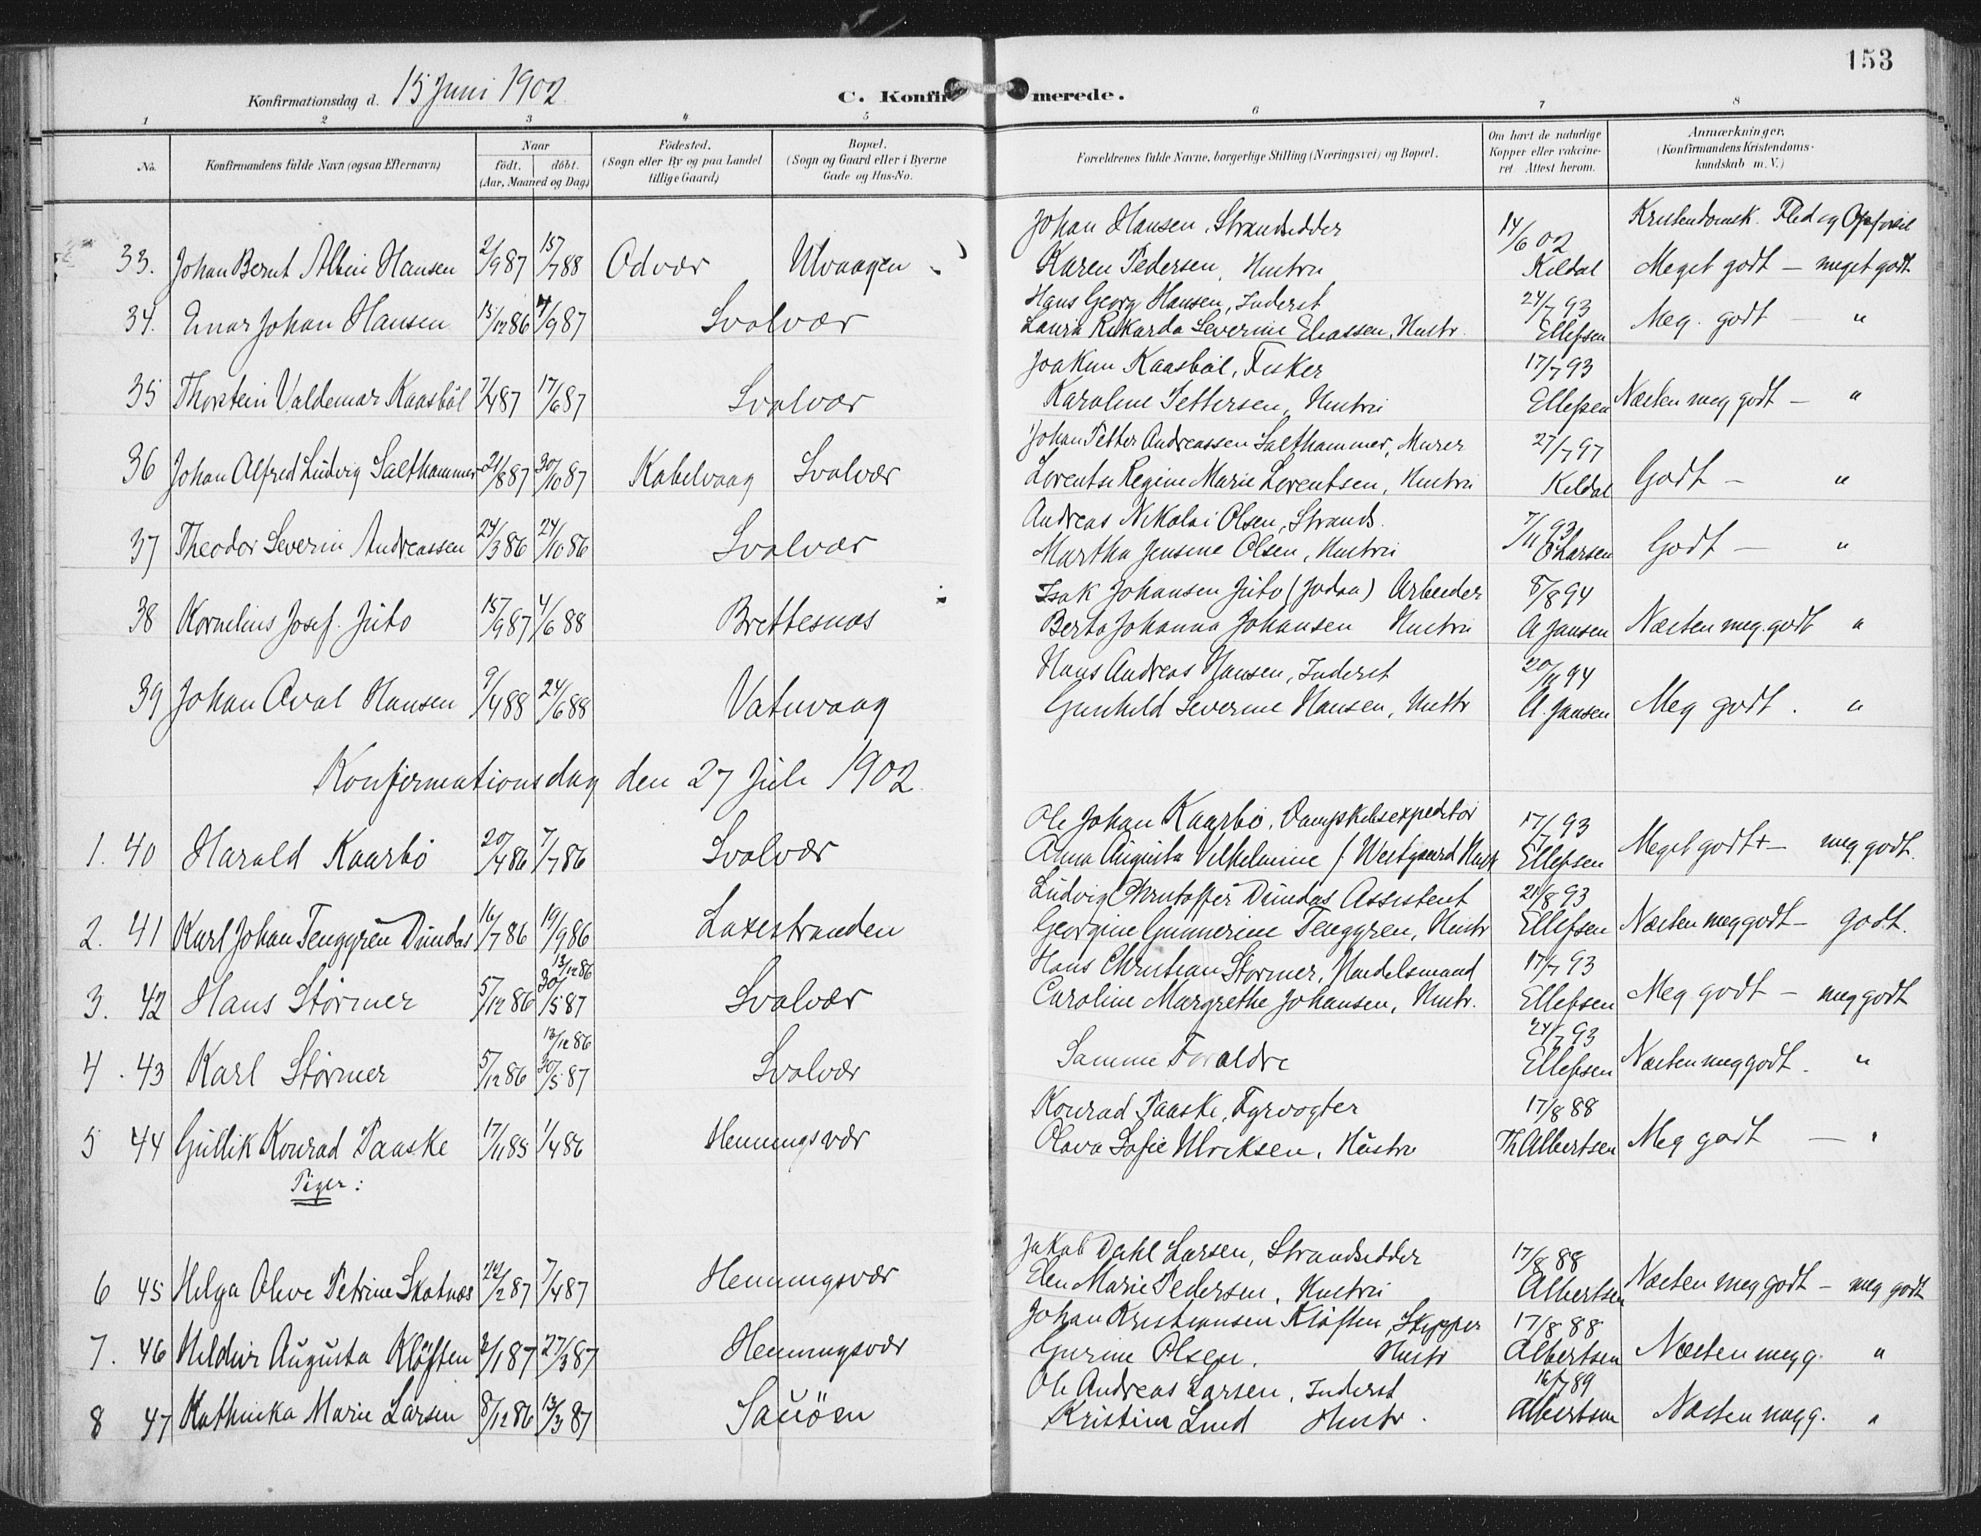 153
Konfirmationsdag d. 15 Juni 1902.
C. Konfirmerede.
1 2 3 4 5 6 7 8
No. Konfirmandens fulde Navn (ogsaa Efternavn) Naar født. døbt. (Aar, Maaned og Dag) Fødested. (Sogn eller By og paa Landet tillige Gaard) Bopæl. (Sogn og Gaard eller i Byerne Gade og Hus-No. Forældrenes fulde Navne, borgerlige Stilling (Næringsvei) og Bopæl. Om havt de naturlige Kopper eller vakcineret Attest herom. Anmærkninger, (Konfirmandens Kristendomskundskab m. V.)
Johan Hansen, Strandsidder 14/6 02 Kristendomsk. Flid og Opførsel
33. Johan Bernt Albin Hansen 2/9 87 15/7 88 Odvær Ulvaagen Karen Pedersen, Hustru Kildal Meget godt – meget godt
Hans Georg Hansen, Inderst 24/7 93
34. Einar Johan Hansen 15/12 86 4/9 87 Svolvær Laura Rikarda Severine Eliassen, Hustr. Ellefsen Meg. godt – "
Joakim Kaasbøl, Fisker 17/7 93
35 Thorstein Valdemar Kaasbøl 7/4 87 17/6 87 Svolvær Karoline Pettersen, Hustru Ellefsen Næsten meg godt – "
Johan Petter Andreassen Salthammer, Murer 27/7 97
36 Johan Alfred Ludvig Salthammer 21/8 87 30/10 87 Kabelvaag Svolvær Lorentse Regine Marie Lorentsen, Hustru Kildal Godt – "
Andreas Nikolai Olsen, Strands. 7/11 93
37 Theodor Severin Andreassen 24/3 86 24/10 86 Svolvær Martha Jensine Olsen, Hustru O Larsen Godt – "
Isak Johansen Juto (Jodaa) Arbeider 8/8 94
38 Kornelius Josef. Juto 15/9 87 4/6 88 Brettesnæs Berta Johanna Johansen Hustru A Jansen Næsten meg. godt "
Hans Andreas Hansen, Inderst 20/11 94
39 Johan Oval Hansen 9/4 88 24/6 88 Vatnvaag Gunhild Severine Hansen, Hustr A. Jansen Meg godt. "
Konfirmationsdag den 27 Juli 1902.
Ole Johan Kaarbø, Dampskibsexpeditør 17/7 93
1. 40 Harald Kaarbø 20/4 86 7/7 86 Svolvær Anna Augusta Vilhelmine f. Westgaard Hustr Ellefsen Meget godt + – meg godt.
Ludvig Christoffer Dundas Assistent 21/8 93
2. 41 Karl Johan Tenggren Dundas 16/7 86 19/9 86 Laxestranden Georgine Gunnerine Tenggren, Hustr Ellefsen Næsten meg godt – godt.
13/12 86 Hans Christian Størmer, Handelsmand 17/7 93
3. 42 Hans Størmer 5/12 86 30/5 87 Svolvær Caroline Margrethe Johansen, Hustr. Ellefsen Meg godt – meg godt
13/12 86 24/7 93
4. 43 Karl Størmer 5/12 86 30/5 87 Svolvær Samme Forældre Ellefsen Næsten meg godt. "
Konrad Paaske, Fyrvogter 17/8 88
5 44 Gullik Konrad Paaske 17/11 85 1/4 86 Henningsvær Olava Sofie Ulriksen, Hustru Th Albertsen Meg godt – "
Piger:
Jakob Dahl Larsen, Strandsidder 17/8 88
6 45 Helga Olive Petrine Skotnæs 22/2 87 7/4 87 Henningsvær Elen Marie Pedersen, Hustru Albertsen Næsten meg godt – meg godt
Johan Kristiansen Kløften, Skipper 17/8 88
7. 46 Hildur Augusta Kløften 2/1 87 27/3 87 Henningsvær Gurine Olsen, Hustr Albertsen Næsten meg g. "
Ole Andreas Larsen, Inderst 16/7 89
8 47 Kathinka Marie Larsen 8/12 86 13/3 87 Sauöen Kristine Lind Hustr. Albertsen Næsten meg g. "